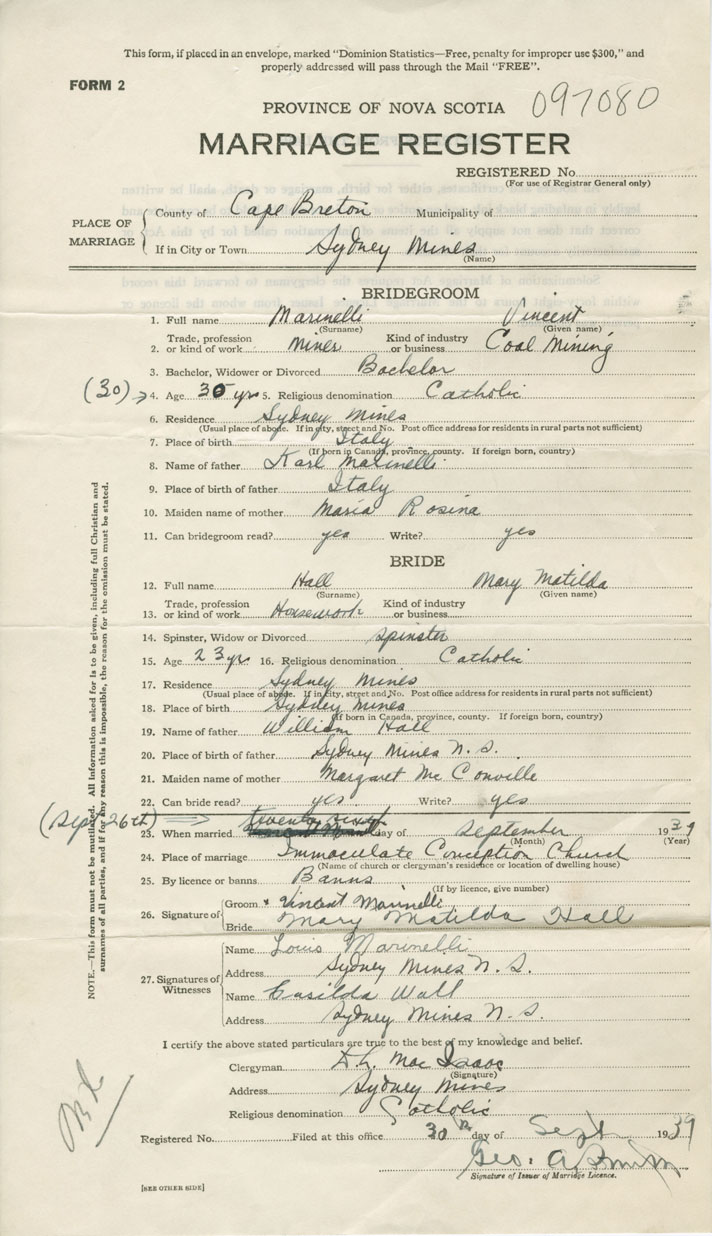 This form, if placed in an envelope, marked "Dominion Statistics—Free, penalty for improper use $300," and
properly addressed will pass through the Mail "FREE".
FORM 2
PROVINCE OF NOVA SCOTIA 097080
MARRIAGE REGISTER
REGISTERED No.
(For use of Registrar General only)
PLACE OF MARRIAGE
County of Cape Breton Municipality of
If in City or Town Sydney Mines
(Name)
BRIDEGROOM
1. Full name Marinelli Vincent
(Surname) (Given name)
2. Trade, profession or kind of work Miner Kind of industry or business Coal Mining
3. Bachelor, Widower or Divorced Bachelor
(30) → 4. Age 30 yrs 5. Religious denomination Catholic
6. Residence Sydney Mines
(Usual place of abode. If in city, street and No. Post office address for residents in rural parts not sufficient)
7. Place of birth Italy
(If born in Canada, province, county. If foreign born, country)
8. Name of father Karl Marinelli
9. Place of birth of father Italy
10. Maiden name of mother Maria Rosina
11. Can bridegroom read? yes Write? yes
BRIDE
12. Full name Hall Mary Matilda
(Surname) (Given name)
13. Trade, profession or kind of work Housework Kind of industry or business
14. Spinster, Widow or Divorced Spinster
15. Age 23 yrs 16. Religious denomination Catholic
17. Residence Sydney Mines
(Usual place of abode. If in city, street and No. Post office address for residents in rural parts not sufficient)
18. Place of birth Sydney Mines
(If born in Canada, province, county. If foreign born, country)
19. Name of father William Hall
20. Place of birth of father Sydney Mines N. S.
21. Maiden name of mother Margaret Mc Conville
22. Can bride read? yes Write? yes
(Sept 26th) ⇒ twenty sixth
23. When married day of September 1939
(Month) (Year)
24. Place of marriage Immaculate Conception Church
(Name of church or clergyman's residence or location of dwelling house)
25. By licence or banns Banns
(If by licence, give number)
26. Signature of
Groom x Vincent Marinelli
Bride Mary Matilda Hall
27. Signatures of Witnesses
Name Louis Marinelli
Address Sydney Mines N. S.
Name Casilda Wall
Address Sydney Mines N. S.
I certify the above stated particulars are true to the best of my knowledge and belief.
Clergyman Mac Isaac
(Signature)
Address Sydney Mines
Religious denomination Catholic
Registered No. Filed at this office 30th day of Sept 1939
Geo. A.
Signature of Issuer of Marriage Licence.
[SEE OTHER SIDE]
NOTE.—This form must not be mutilated. All information asked for is to be given, including full Christian and
surnames of all parties, and if for any reason this is impossible, the reason for the omission must be stated.